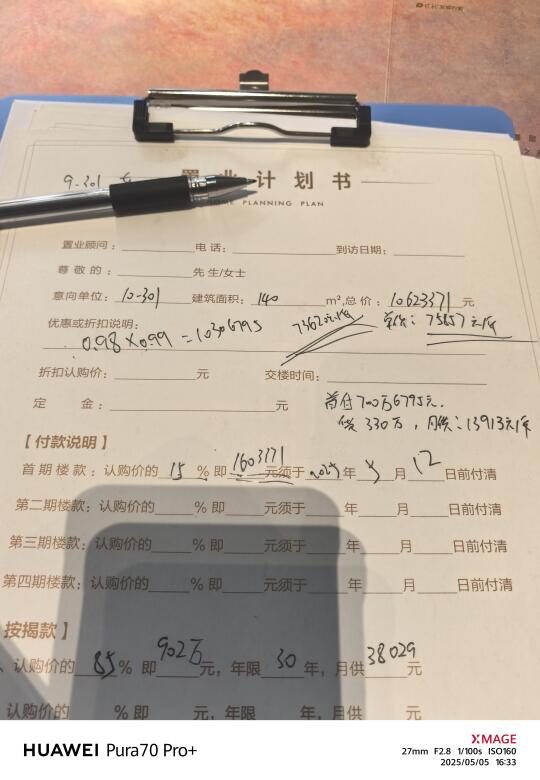 9-301
置业计划书
HOME PLANNING PLAN
置业顾问：　电话：　到访日期：
尊敬的：　先生/女士
意向单位：10-301 建筑面积：140 m²,总价：10623371 元
优惠或折扣说明：
0.98×0.99=10306795
单价：75857元/㎡
折扣认购价：　元　交楼时间：
定　金：　元
首付700万6795元.
贷330万，月供：13913元/月
【付款说明】
首期楼款：认购价的15%即1603171元须于2025年5月12日前付清
第二期楼款：认购价的　%即　元须于　年　月　日前付清
第三期楼款：认购价的　%即　元须于　年　月　日前付清
第四期楼款：认购价的　%即　元须于　年　月　日前付清
按揭款】
、认购价的85%即902万元，年限30年，月供38029元
认购价的　%即　元，年限　年，月供　元
HUAWEI Pura70 Pro+
XMAGE
27mm F2.8 1/100s ISO160
2025/05/05 16:33